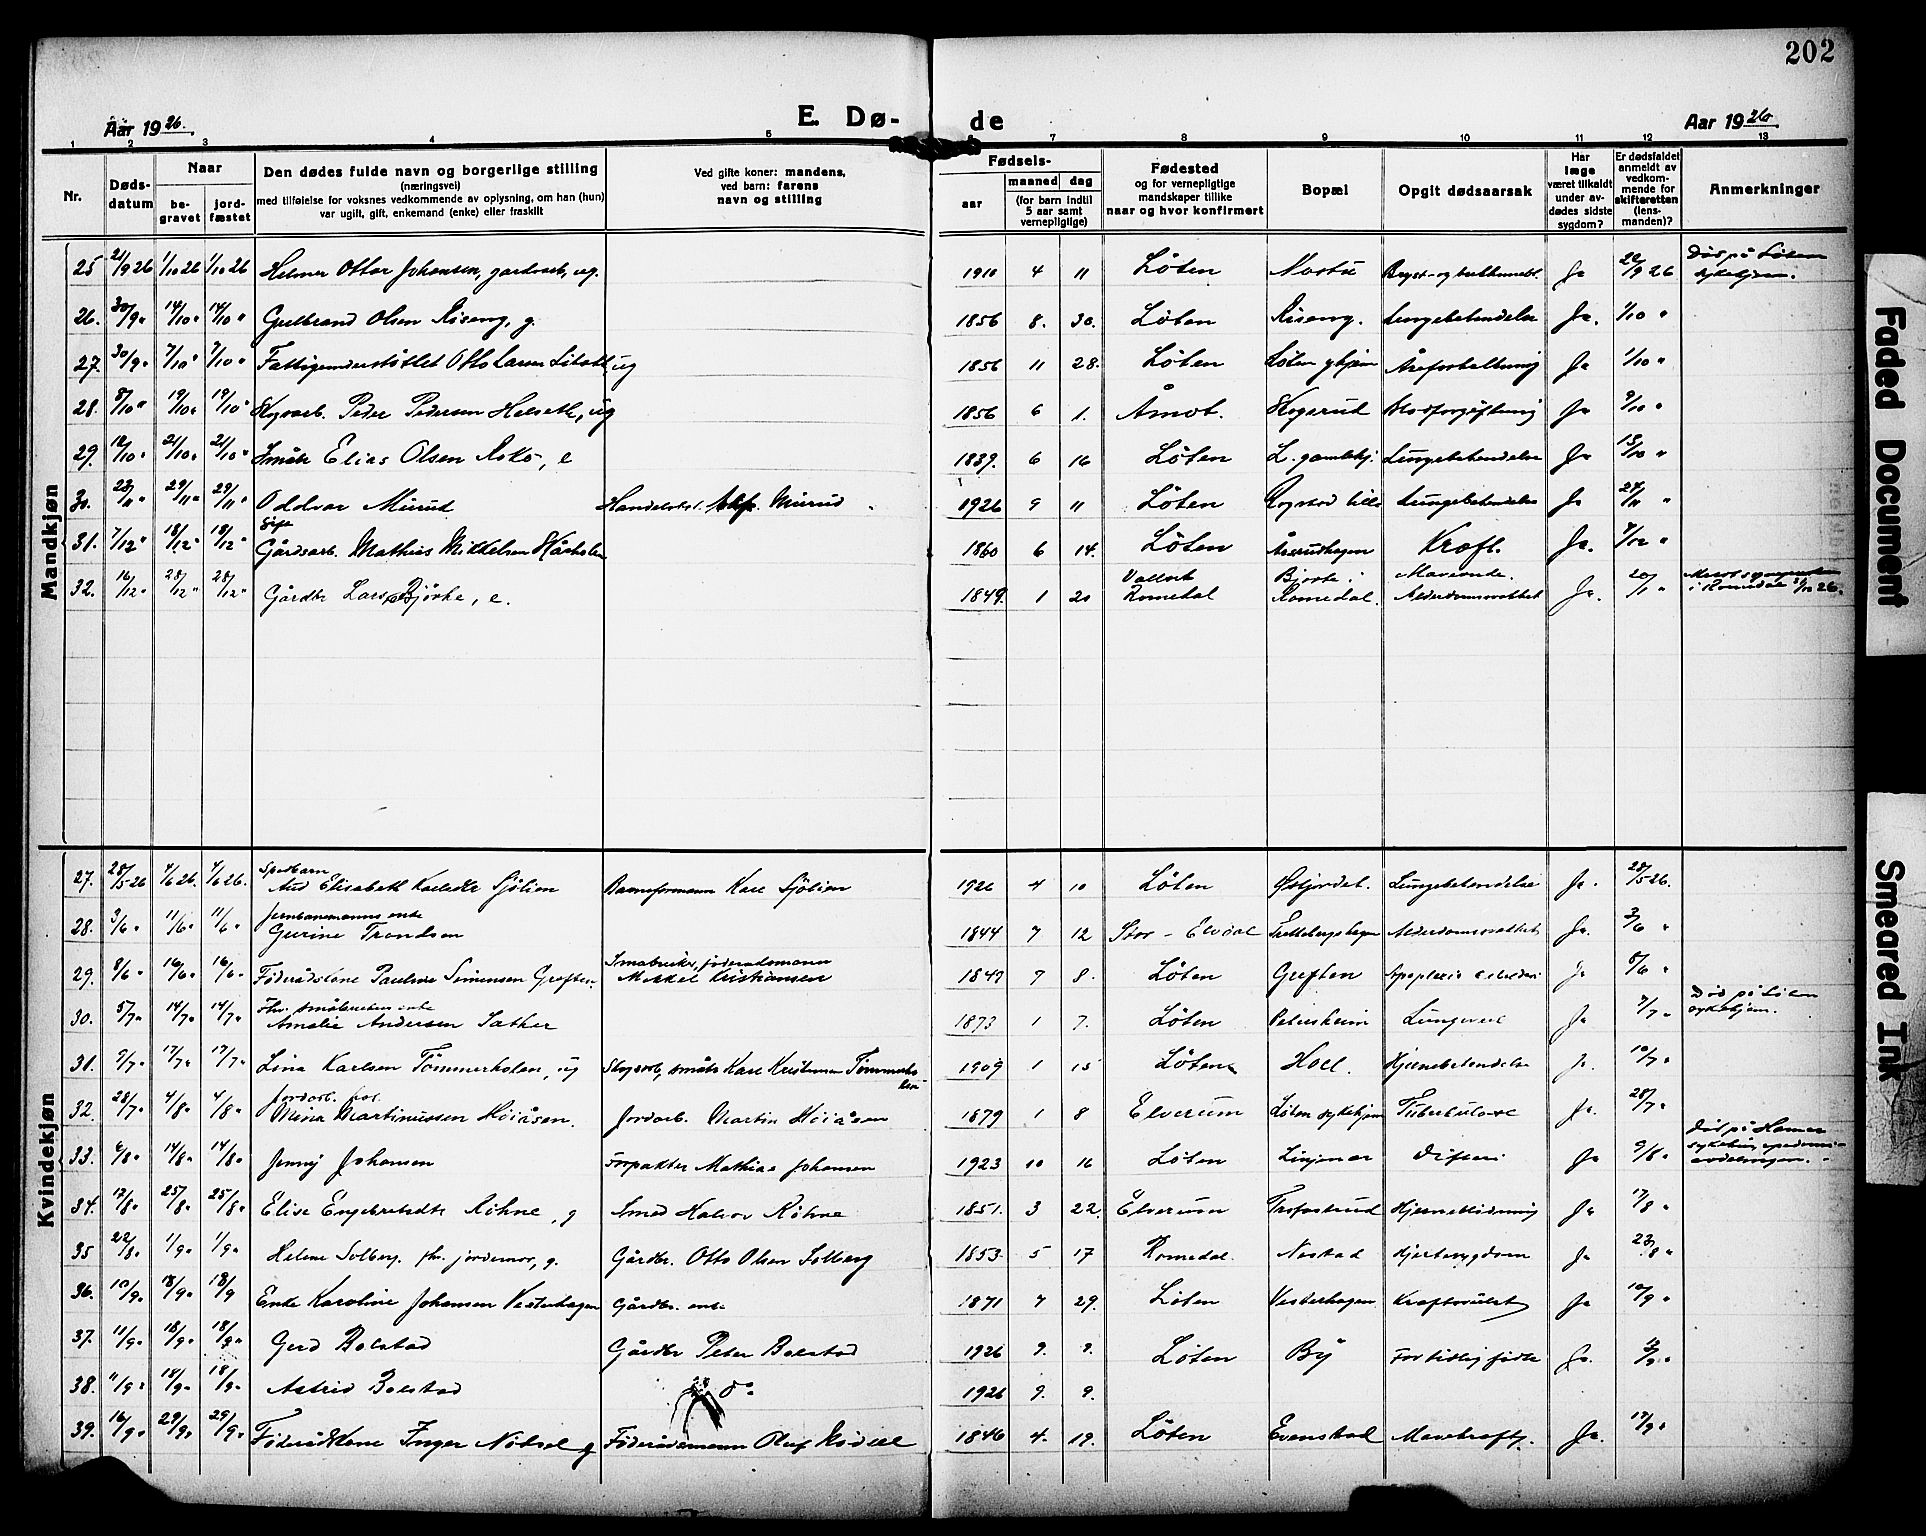 202
E. Dø- de
Aar 1926.
Aar 1926
1 2 3 4 5 7 8 9 10 11 12 13
Nr.
Døds-
datum
Naar
be-
gravet
jord-
fæstet
Den dødes fulde navn og borgerlige stilling
(næringsvei)
med tilføielse for voksnes vedkommende av oplysning, om han (hun)
var ugift, gift, enkemand (enke) eller fraskilt
Ved gifte koner: mandens,
ved barn: farens
navn og stilling
Fødsels-
aar
maaned dag
(for barn indtil
5 aar samt
vernepligtige)
Fødested
og for vernepligtige
mandskaper tillike
naar og hvor konfirmert
Bopæl
Opgit dødsaarsak
Har
læge
været tilkaldt
under av-
dødes sidste
sygdom?
Er dødsfaldet
anmeldt av
vedkom-
mende for
skifteretten
(lens-
manden)?
Anmerkninger
Mandkjøn
25 21/9 26 1/10 26 1/10 26 Helmer Ottar Johansen, gardsarb, ug. 1910 4 11 Løten Ja 22/9 26 Død på Løten sykehjem.
26. 30/9 " 14/10 " 14/10 " Gulbrand Olsen Riseng, g. 1856 8. 30. Løten Riseng. Lungebetendelse Ja. 1/10 "
27. 30/9 " 7/10 " 7/10 " Fattigunderstøttet Otto Larsen ug 1856 11 28. Løten Løten sykhjem Åreforkaltning Ja 1/10 "
28. 8/10 " 19/10 " 19/10 " Skogarb. Peder Pedersen Helseth, ug 1856 6 1. Åmot. Skogsrud Blodforgiftning Ja 9/10 "
29. 12/10 " 21/10 " 21/10 " Småbr Elias Olsen Rokø, e 1839. 6 16 Løten L. gamlehj. Lungebetendelse Ja 13/10 "
30. 23/11 " 29/11 " 29/11 " Oddvar Murud Handelsbest. Murud 1926 9 11 Løten Rogstad lille Lungebetendelse Ja 24/11 "
31. 7/12 " 18/12 " 18/12 " Gift Gårdsarb. Mathias Mikkelsen 1860 6 14. Løten Kræft. Ja. 9/12 "
32. 16/12 " 28/12 " 28/12 " Gårdbr Lars Bjørke, e. 1849. 1 20 Vallset Romedal Bjørke i Romedal. Alderdomssvakhet Ja. 20/1 "
Kvindekjøn
27. 28/5 26 4/6 26. 4/6 26. Spedbarn Aud Elisabeth Karlsdtr Sjølien Baneformann Karl Sjølien 1926 4 10 Løten Østjordet. Lungebetendelse Ja. 28/5 26.
28. 3/6 " 11/6 " 11/6 " Jernbanemanns enke Gurine Trondsen 1844 7 12 Stor-Elvdal Alderdomssvakhet Ja. 3/6 "
29. 8/6 " 16/6 " 16/6 " Føderådskone Pauline Simensen Greften. Småbruker, føderådsmann Mikkel Kristiansen 1847 7 8. Løten Greften Apoplexia cerebri Ja 8/6 "
30. 5/7 " 14/7 " 14/7 " Fhv. småbrukers enke Amalie Andersen Sæther 1873 1 7. Løten Petersheim Ja 7/7 " Død på Løten sykehjem.
31. 9/7 " 17/7 " 17/7 " Lina Karlsen Tømmerholen, ug Skogsarb, småbr Karl Kristiansen Tømmerholen 1909 1 15 Løten Hoel. Hjernebetendelse Ja. 10/7 "
32. 28/7 " 4/8 " 4/8 " Jordarb. Mina Martinussen Høiåsen. Jordarb. Martin Høiåsen 1879 1 8 Elverum Løten sykehjem Tuberkulose Ja. 28/7 "
33. 6/8 " 14/8 " 14/8 " Jenny Johansen Forpakter Mathias Johansen 1923 10 16 Løten Difteri Ja 9/8 " Død på Hamar sykehus, epedemi-avdelingen.
34. 17/8 " 25/8 " 25/8 " Elise Engebretsdtr Røhne, g Smed Halvor Røhne 1851. 3 22. Elverum Hjerneblødning Ja 17/8 "
35 22/8 " 1/9 " 1/9 " Helene Solberg. fhv. jordemor, g. Gårdbr. Otto Olsen Solberg 1853. 5 17 Romedal. Nestad Hjertesygdom Ja 23/8 "
36. 10/9 " 18/9 " 18/9 Enke Karoline Johansen Vesterhagen Gårdbr. enke 1871 7 29. Løten Vesterhagen Kraftsvulst Ja 10/9 "
37. 11/9 " 18/9 " 18/9 " Gerd Bolstad Gårdbr Peter Bolstad 1926 9. 9. Løten By For tidlig født Ja. 13/9 "
38. 11/9 " 18/9 " 18/9 " Astrid Bolstad do 1926 9. 9.
39. 16/9 " 29/9 " 29/9 " Føderådskone Inger g Føderådsmann Oluf 1846 4. 19. Løten Evenstad Mavekræft. Ja. 17/9 "
Faded Document
Smeared Ink